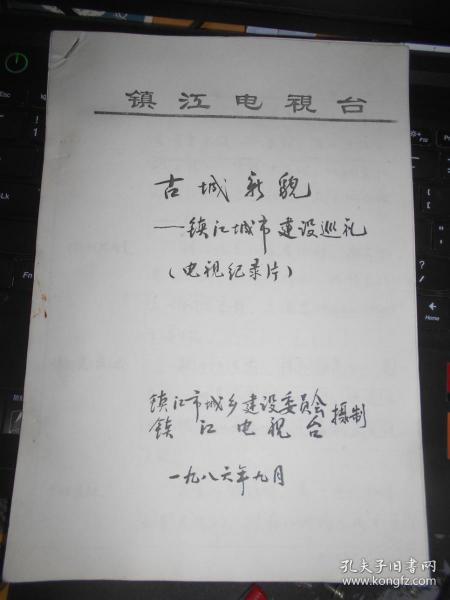 镇江电視台
古城新貌
——镇江城市建设巡礼
（电视纪录片）
镇江市城乡建设委员会
镇江电视台 摄制
一九八六年九月
孔夫子旧书网
www.kongfz.com